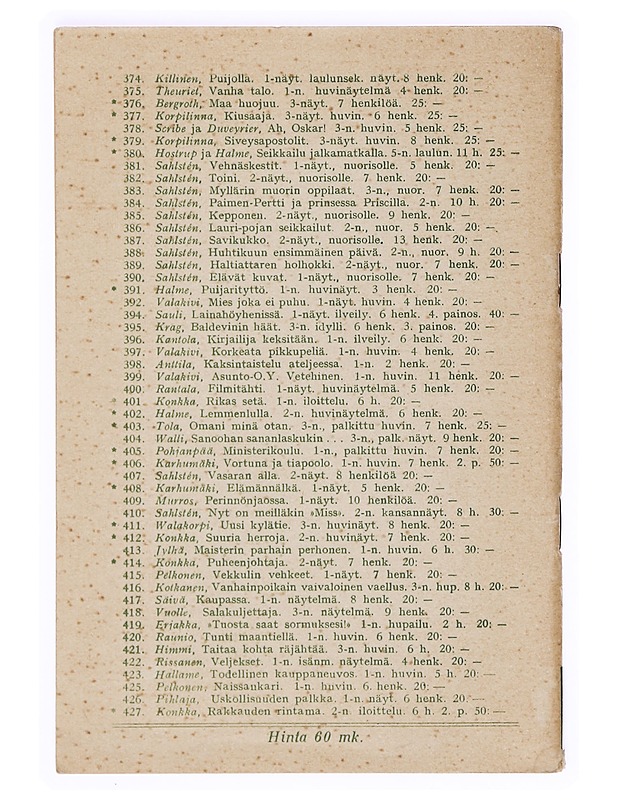 374. Killinen, Puijolla. 1-näyt. laulunsek. näyt. 8 henk. 20: —
375. Theuriet, Vanha talo. 1-n. huvinäytelmä 4 henk. 20: —
* 376. Bergroth, Maa huojuu. 3-näyt. 7 henkilöä. 25: —
* 377. Korpilinna, Kiusaaja. 3-näyt. huvin. 6 henk. 25: —
378. Scribe ja Duveyrier, Ah, Oskar! 3-n. huvin. 5 henk. 25: —
* 379. Korpilinna, Siveysapostolit. 3-näyt. huvin. 8 henk. 25: —
* 380. Hostrup ja Halme, Seikkailu jalkamatkalla. 5-n. laulun. 11 h. 25: —
381. Sahlstén, Vehnäskestit. 1-näyt., nuorisolle. 5 henk. 20: —
382. Sahlstén, Toini. 2-näyt., nuorisolle. 7 henk. 20: —
383. Sahlstén, Myllärin muorin oppilaat. 3-n., nuor. 7 henk. 20: —
384. Sahlstén, Paimen-Pertti ja prinsessa Priscilla. 2-n. 10 h. 20: —
385. Sahlstén, Kepponen. 2-näyt., nuorisolle. 9 henk. 20: —
386. Sahlstén, Lauri-pojan seikkailut. 2-n., nuor. 5 henk. 20: —
387. Sahlstén, Savikukko. 2-näyt., nuorisolle. 13 henk. 20: —
388. Sahlstén, Huhtikuun ensimmäinen päivä. 2-n., nuor. 9 h. 20: —
389. Sahlstén, Haltiattaren holhokki. 2-näyt., nuor. 7 henk. 20: —
390. Sahlstén, Elävät kuvat. 1-näyt., nuorisolle. 7 henk. 20: —
* 391. Halme, Puijarityttö. 1-n. huvinäyt. 3 henk. 20: —
392. Valakivi, Mies joka ei puhu. 1-näyt. huvin. 4 henk. 20: —
394. Sauli, Lainahöyhenissä. 1-näyt. ilveily. 6 henk. 4. painos. 40: —
395. Krag, Baldevinin häät. 3-n. idylli. 6 henk. 3. painos. 20: —
396. Kantola, Kirjailija keksitään. 1-n. ilveily. 6 henk. 20: —
397. Valakivi, Korkeata pikkupeliä. 1-n. huvin. 4 henk. 20: —
398. Anttila, Kaksintaistelu ateljeessa. 1-n. 2 henk. 20: —
399. Valakivi, Asunto-O.Y. Vetehinen. 1-n. huvin. 11 henk. 20: —
400. Rantala, Filmitähti. 1-näyt. huvinäytelmä. 5 henk. 20: —
401. Konkka, Rikas setä. 1-n. iloittelu. 6 h. 20: —
* 402. Halme, Lemmenlulla. 2-n. huvinäytelmä. 6 henk. 20: —
* 403. Tola, Omani minä otan. 3-n., palkittu huvin. 7 henk. 25: —
404. Walli, Sanoohan sananlaskukin . . . 3-n., palk. näyt. 9 henk. 20: —
* 405. Pohjanpää, Ministerikoulu. 1-n., palkittu huvin. 7 henk. 20: —
* 406. Karhumäki, Vortuna ja tiapoolo. 1-n. huvin. 7 henk. 2. p. 50: —
407. Sahlstén, Vasaran alla. 2-näyt. 8 henkilöä 20: —
* 408. Karhumäki, Elämännälkä. 1-näyt. 5 henk. 20: —
409. Murros, Perinnönjaossa. 1-näyt. 10 henkilöä. 20: —
410. Sahlstén, Nyt on meilläkin »Miss». 2-n. kansannäyt. 8 h. 30: —
* 411. Walakorpi, Uusi kylätie. 3-n. huvinäyt. 8 henk. 20: —
* 412. Konkka, Suuria herroja. 2-n. huvinäyt. 7 henk. 20: —
413. Jylhä, Maisterin parhain perhonen. 1-n. huvin. 6 h. 30: —
* 414. Konkka, Puheenjohtaja. 2-näyt. 7 henk. 20: —
415. Pelkonen, Vekkulin vehkeet. 1-näyt. 7 henk. 20: —
416. Kotkanen, Vanhainpoikain vaivaloinen vaellus. 3-n. hup. 8 h. 20: —
417. Säivä, Kaupassa. 1-n. näytelmä. 8 henk. 20: —
418. Vuolle, Salakuljettaja. 3-n. näytelmä. 9 henk. 20: —
419. Erjakka, »Tuosta saat sormuksesi!» 1-n. hupailu. 2 h. 20: —
420. Raunio, Tunti maantiellä. 1-n. huvin. 6 henk. 20: —
421. Himmi, Taitaa kohta räjähtää. 3-n. huvin. 6 h. 20: —
422. Rissanen, Veljekset. 1-n. isänm. näytelmä. 4 henk. 20: —
423. Hallame, Todellinen kauppaneuvos. 1-n. huvin. 5 h. 20: —
425. Pelkonen, Naissankari. 1-n. huvin. 6. henk. 20: —
426. Pihlaja, Uskollisuuden palkka. 1-n. näyt. 6 henk. 20: —
* 427. Konkka, Rakkauden rintama. 2-n. iloittelu. 6 h. 2. p. 50: —
Hinta 60 mk.